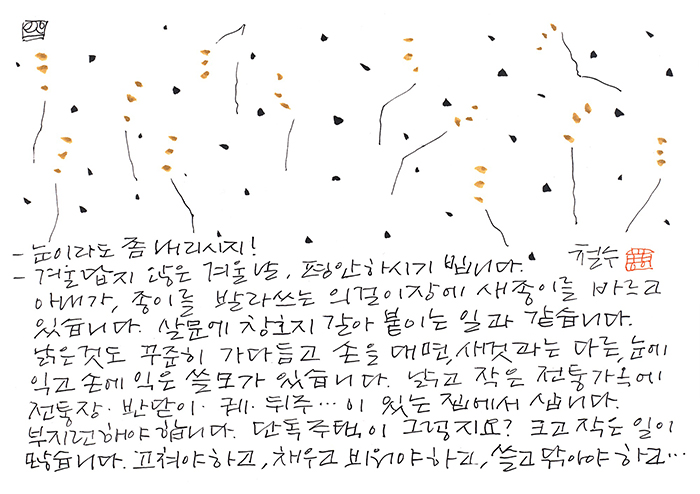 - 눈이라도 좀 내리시지!
- 겨울답지 않은 겨울날, 평안하시기 빕니다. 철수
아내가, 종이를 발라쓰는 의걸이장에 새종이를 바르고
있습니다. 살문에 창호지 갈아 붙이는 일과 같습니다.
낡은것도 꾸준히 가다듬고 손을 대면, 새것과는 다른, 눈에
익고 손에 익은 쓸모가 있습니다. 낡고 작은 전통가옥에
전통장·반닫이·궤·뒤주···이 있는 집에서 삽니다.
부지런해야 합니다. 단독주택이 그렇지요? 크고 작은 일이
많습니다. 고쳐야하고, 채우고 비워야 하고, 쓸고 닦아야 하고···